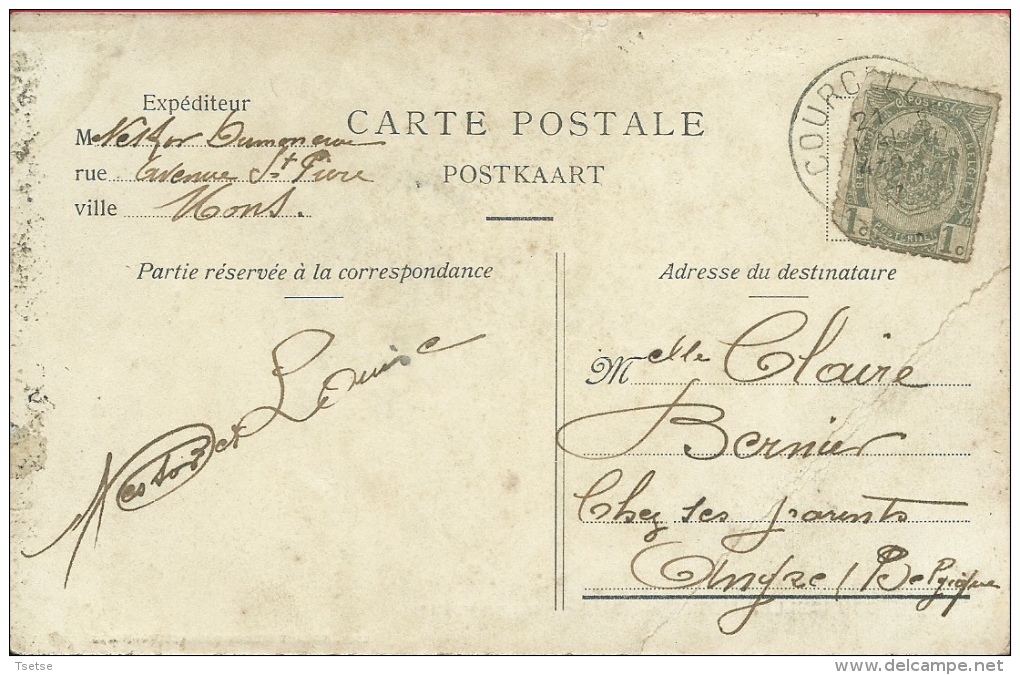 Expéditeur
M Nestor
rue Avenue St Pierre
ville Mons.
CARTE POSTALE
POSTKAART
COURCELL
21
1c 1c
POSTERIJEN
Partie réservée à la correspondance
Adresse du destinataire
Nestor et Louise
Melle Claire
Bernier
Chez ses parents
Angre / Belgique
Tsetse
www.delcampe.net